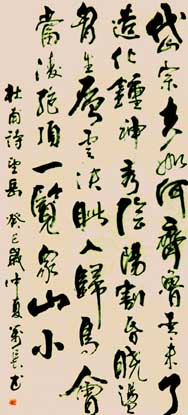 岱宗夫如何齊魯青未了
造化鍾神秀陰陽割昏曉盪
胸生層雲決眦入歸鳥會
當凌絕頂一覽眾山小
杜甫詩望岳 癸巳歲仲夏